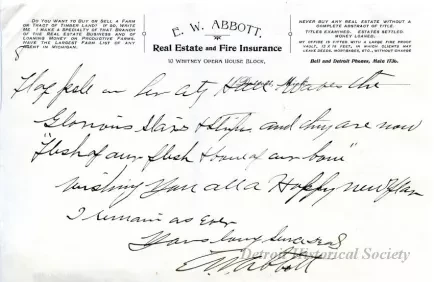 DO YOU WANT TO BUY OR SELL A FARM
OR THAT OF TIMBER LAND? IF SO, WRITE
ME. I MAKE A SPECIALTY OF THAT BRANCH
OF THE REAL ESTATE BUSINESS AND OF
LOANING MONEY ON PRODUCTIVE FARMS.
HAVE THE LARGEST FARM LIST OF ANY
AGENT IN MICHIGAN.
E. W. ABBOTT,
Real Estate and Fire Insurance
10 WHITNEY OPERA HOUSE BLOCK,
NEVER BUY ANY REAL ESTATE WITHOUT A
COMPLETE ABSTRACT OF TITLE.
TITLES EXAMINED. ESTATES SETTLED.
MONEY LOANED.
MY OFFICE IS FITTED WITH A LARGE FIRE PROOF
VAULT, 12 X 14 FEET, IN WHICH CLIENTS MAY
LEAVE DEEDS, MORTGAGES, ETC., WITHOUT CHARGE
Bell and Detroit Phones, Main 1736.
5
Flag in her city the
Glorious Stars & Stripes and they are now
"Flesh of our flesh & bone of our bone"
Wishing you all a Happy new Year
I remain as Ever
Yours very sincerely
E W Abbott
Detroit Historical Society